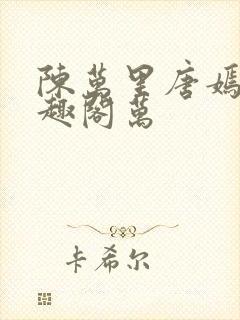 陳萬里唐嫣
趣閣萬
卡希尔